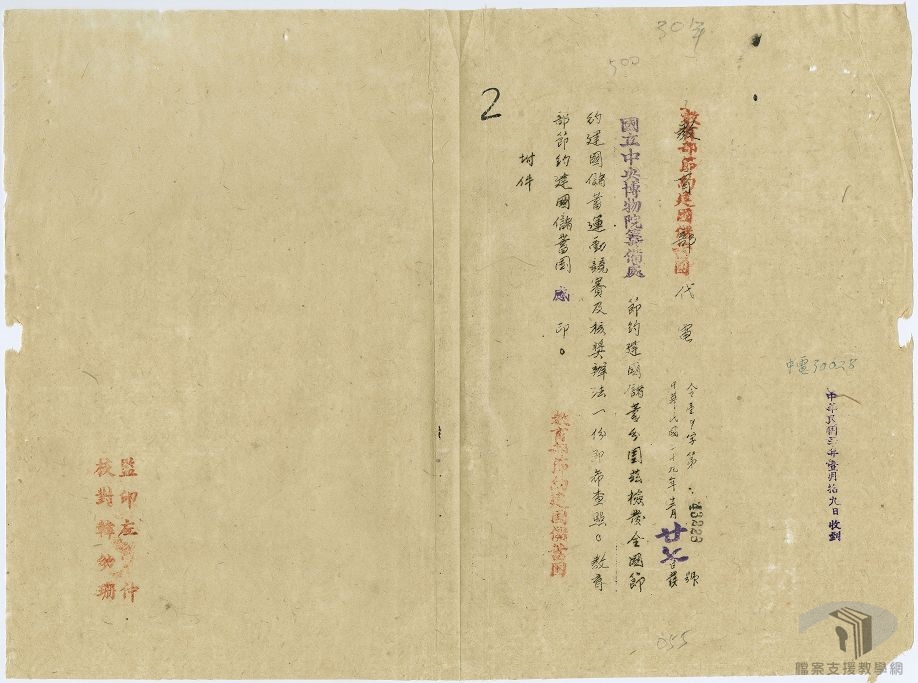 30年
500
中電30028
中華民國三十年壹月拾九日收到
教育部節約建國儲蓄團
代電
第43223號
中華民國二十九年十二月廿七日發
國立中央博物院籌備處 節約建國儲蓄分團茲檢發全國節
約建國儲蓄運動競賽及核獎辦法一份即希查照。教育
部節約建國儲蓄團 感 印。
附件
教育部節約建國儲蓄團
055
2
監印左 仲
校對韓幼珊
檔案支援教學網